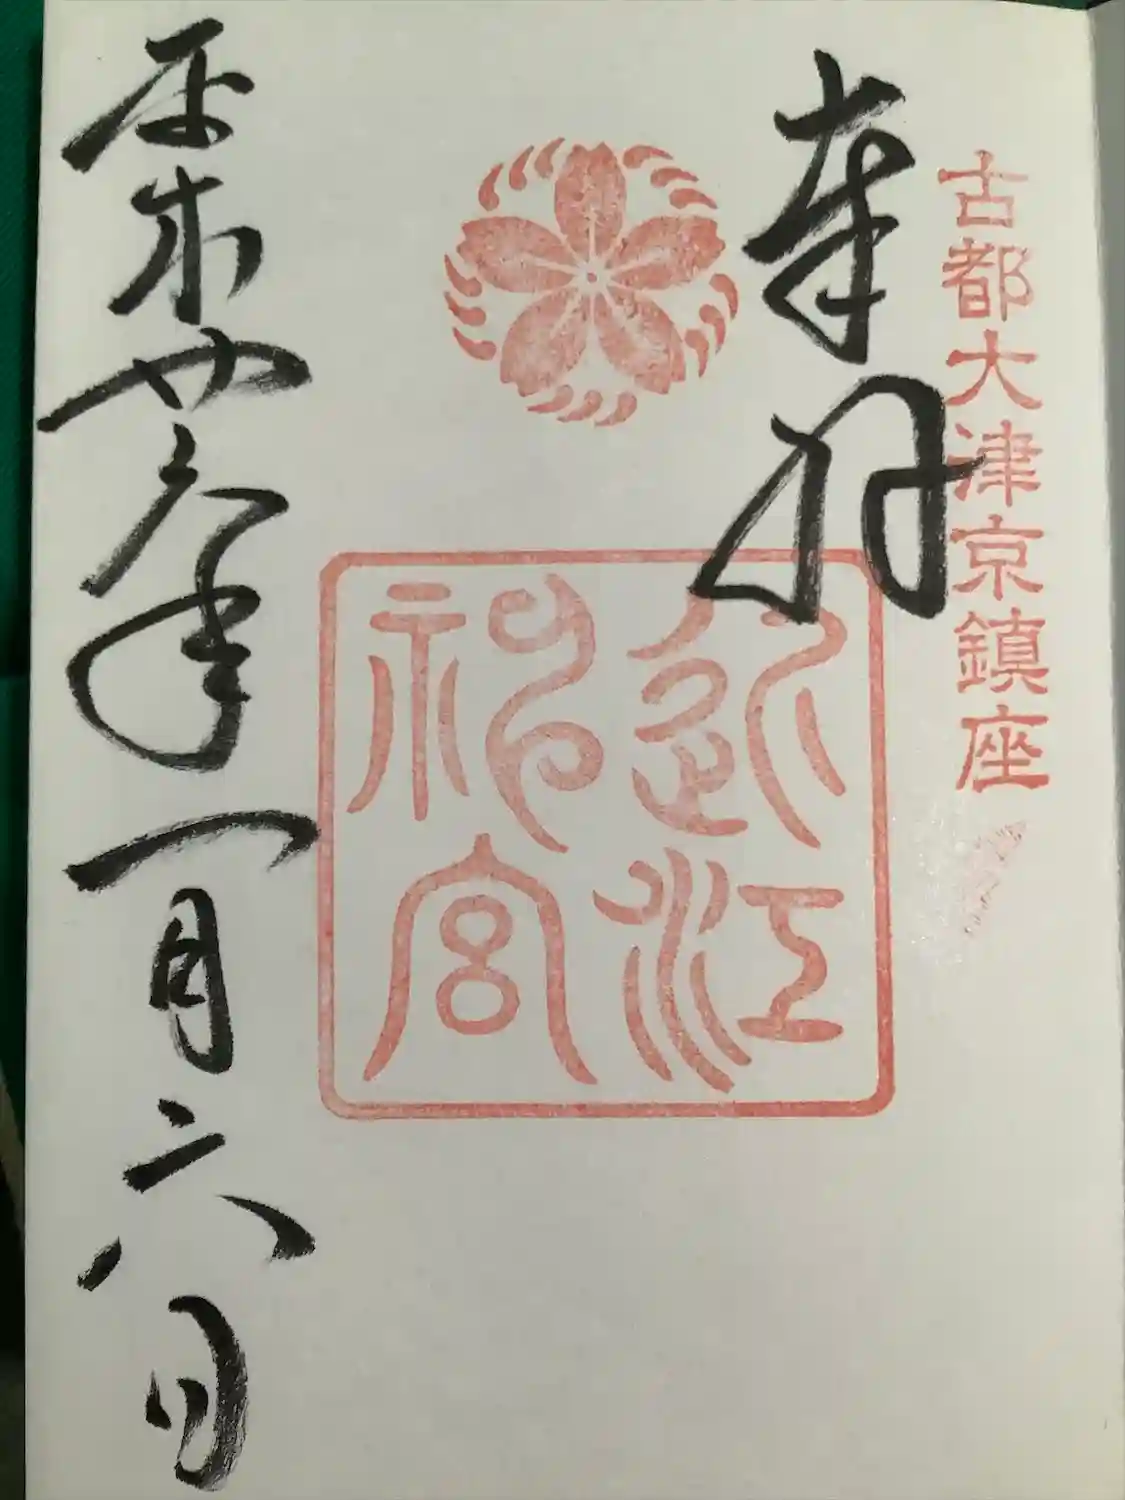 古都大津京鎮座
奉拝
近江
神宮
平成廿年一月六日